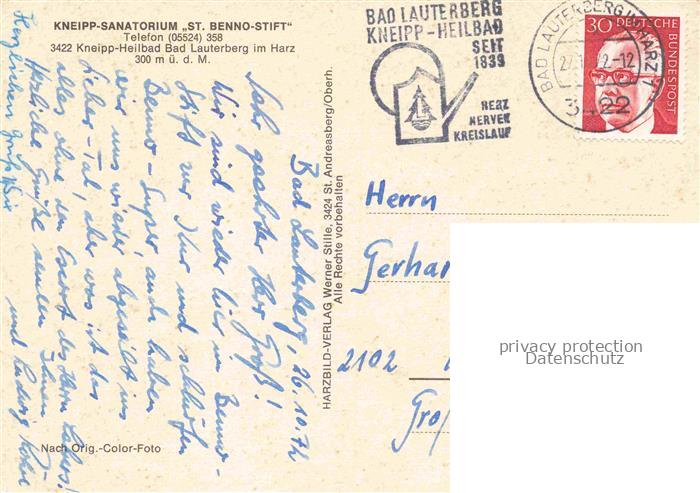 KNEIPP-SANATORIUM „ST. BENNO-STIFT"
Telefon (05524) 358
3422 Kneipp-Heilbad Bad Lauterberg im Harz
300 m ü. d. M.
BAD LAUTERBERG
KNEIPP-HEILBAD
SEIT
1839
HERZ
NERVEN
KREISLAUF
BAD LAUTERBERG IM HARZ 1
-12
3422
30 DEUTSCHE
BUNDESPOST
Bad Lauterberg, 26.10.72
Sehr geehrter Herr Groß!
Wir sind wieder hier im Benno-
Stift zur Kur und schlürfen
Benno-Super, auch haben
wir uns wieder abgeseilt ins
-Tal, aber was ist das
alles ohne den Esprit des Herrn
Herzliche Grüße senden Ihnen
und Ludwig
Herzlichen Gruß
HARZBILD-VERLAG Werner Stille, 3424 St. Andreasberg/Oberh.
Alle Rechte vorbehalten
Herrn
Gerhar
2102
Gro
privacy protection
Datenschutz
Nach Orig.-Color-Foto